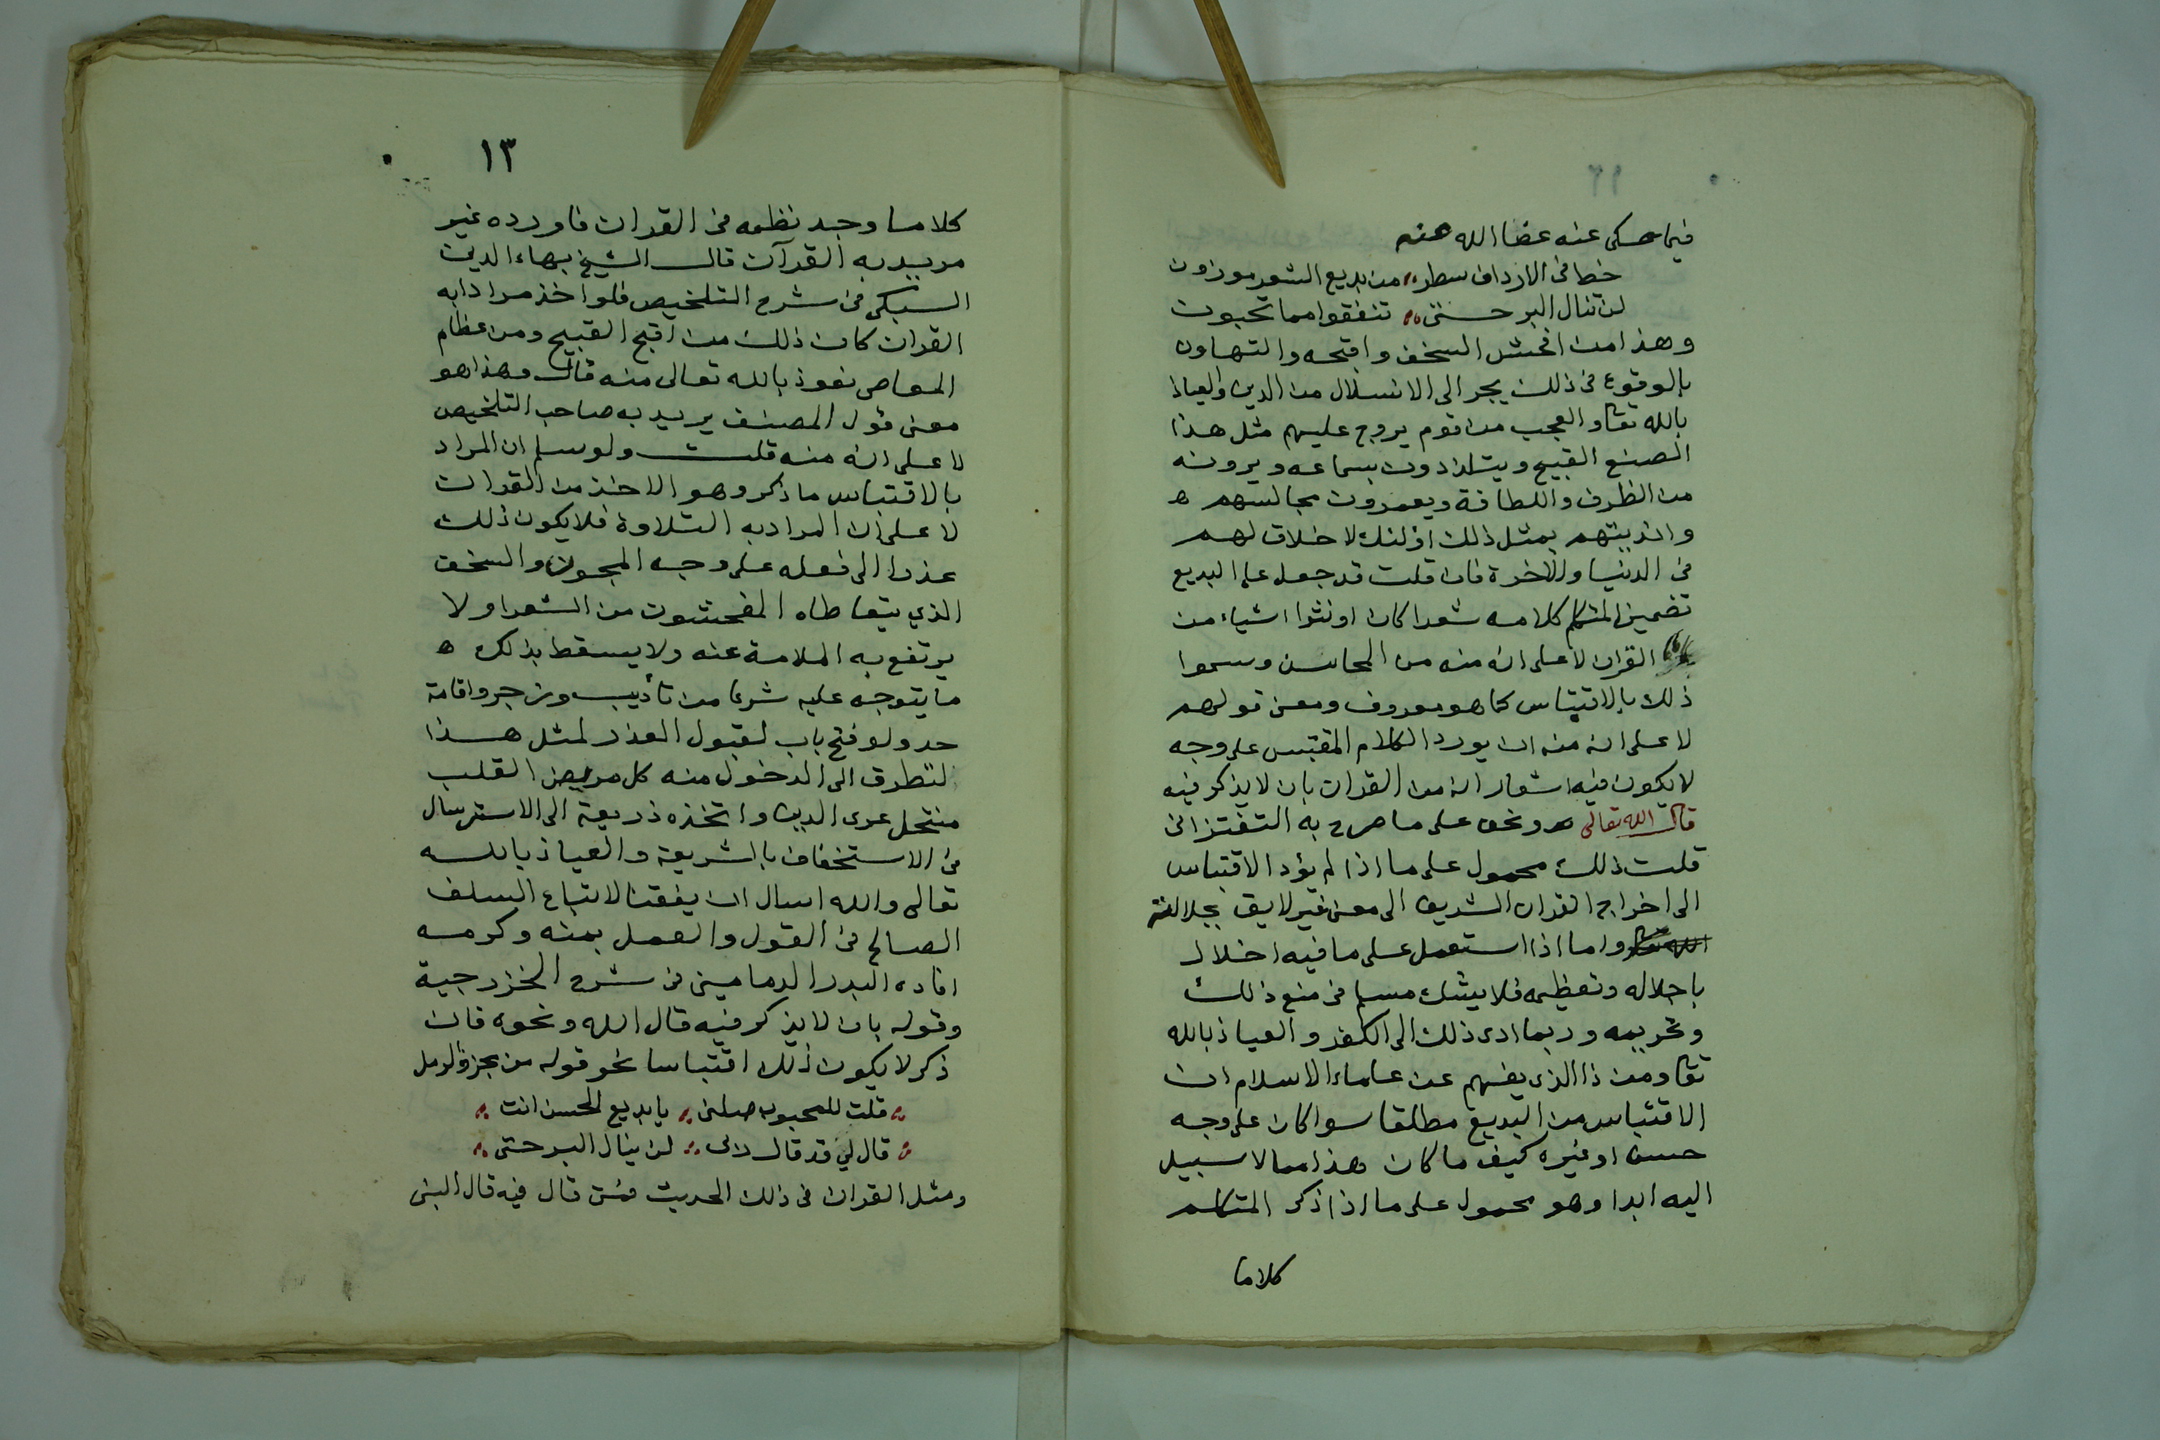 فيما حكى عنه عفا الله عنه
خط في الارداف سطر من بديع الشعر موزون
لن تنال البر حتى تنفقوا مما تحبون
وهذا من افحش السخف واقبحه والتهاون
بالوقوع في ذلك يجر الى الانسلال من الدين والعياذ
بالله تعا والعجب من قوم يروج عليهم مثل هذا
الصنع القبيح ويتلذذون بسماعه ويرونه
من الظرف واللطافة ويعمرون مجالسهم ه
واندیتهم بمثل ذلك اولئك لا خلاق لهم
في الدنيا والاخرة فان قلت قد جعل علما البديع
تضمين المتكلم كلامه شعرا كان او نثرا اشياء من
القران لا على انه منه من المحاسن وسموا
ذلك بالاقتباس كما هو معروف ومعنى قولهم
لا على انه منه ان يورد الكلام المقتبس على وجه
لا يكون فيه اشعار انه من القران بان لا يذكر فيه
قال الله تعالى ونحوه على ما صرح به التفتزانى
قلت ذلك محمول على ما اذا لم يؤد الاقتباس
الى اخراج القران الشريف الى معنى غير لايق بجلالته
واما اذا استعمل على ما فيه اخلال
باجلاله وتعظيمه فلا يشك مسلم في منع ذلك
وتحريمه وربما ادى ذلك الى الكفر والعياذ بالله
تعا ومن ذا الذي يفهم عن علماء الاسلام ان
الاقتباس من البديع مطلقا سوا كان على وجه
حسن او غيره كيف ما كان هذا مما لا سبيل
اليه ابدا وهو محمول على ما اذا ذكر المتكلم
كلاما
١٣
كلاما وجد نظمه في القران فاورده غير
مريد به القرآن قال الشيخ بهاء الدين
السبكى في شرح التلخيص فلو اخذ مرادا به
القران كان ذلك من اقبح القبيح ومن عظام
المعاصى نعوذ بالله تعالى منه قال وهذا هو
معنى قول المصنف يريد به صاحب التلخيص
لا على انه منه قلت ولو سلم ان المراد
بالاقتباس ما ذكر وهو الاخذ من القران
لا على ان المراد به التلاوة فلا يكون ذلك
عذرا الى فعله على وجه المجون والسخف
الذي يتعاطاه المفحشون من الشعرا ولا
يرتفع به الملامة عنه ولا يسقط بذلك ه
ما يتوجه عليه شرعا من تأديب وزجر واقامة
حد ولو فتح باب لقبول العذر لمثل هذا
لتطرق الى الدخول منه كل مريض القلب
منتحل عرى الدين واتخذه ذريعة الى الاسترسال
في الاستخفاف بالشريعة والعياذ بالله
تعالى والله اسال ان يوفقنا لاتباع السلف
الصالح في القول والعمل بمنه وكرمه
افاده البدر الدمامينى في شرح الخزرجية
وقوله بان لا يذكر فيه قال الله ونحوه فان
ذكر لا يكون ذلك اقتباسا نحو قوله من مجزؤ الرمل
قلت للمحبوب صلنى يا بديع الحسن انت
قال لي قد قال ربى لن ينال البر حتى
ومثل القران في ذلك الحديث فمتى قال فيه قال النبى